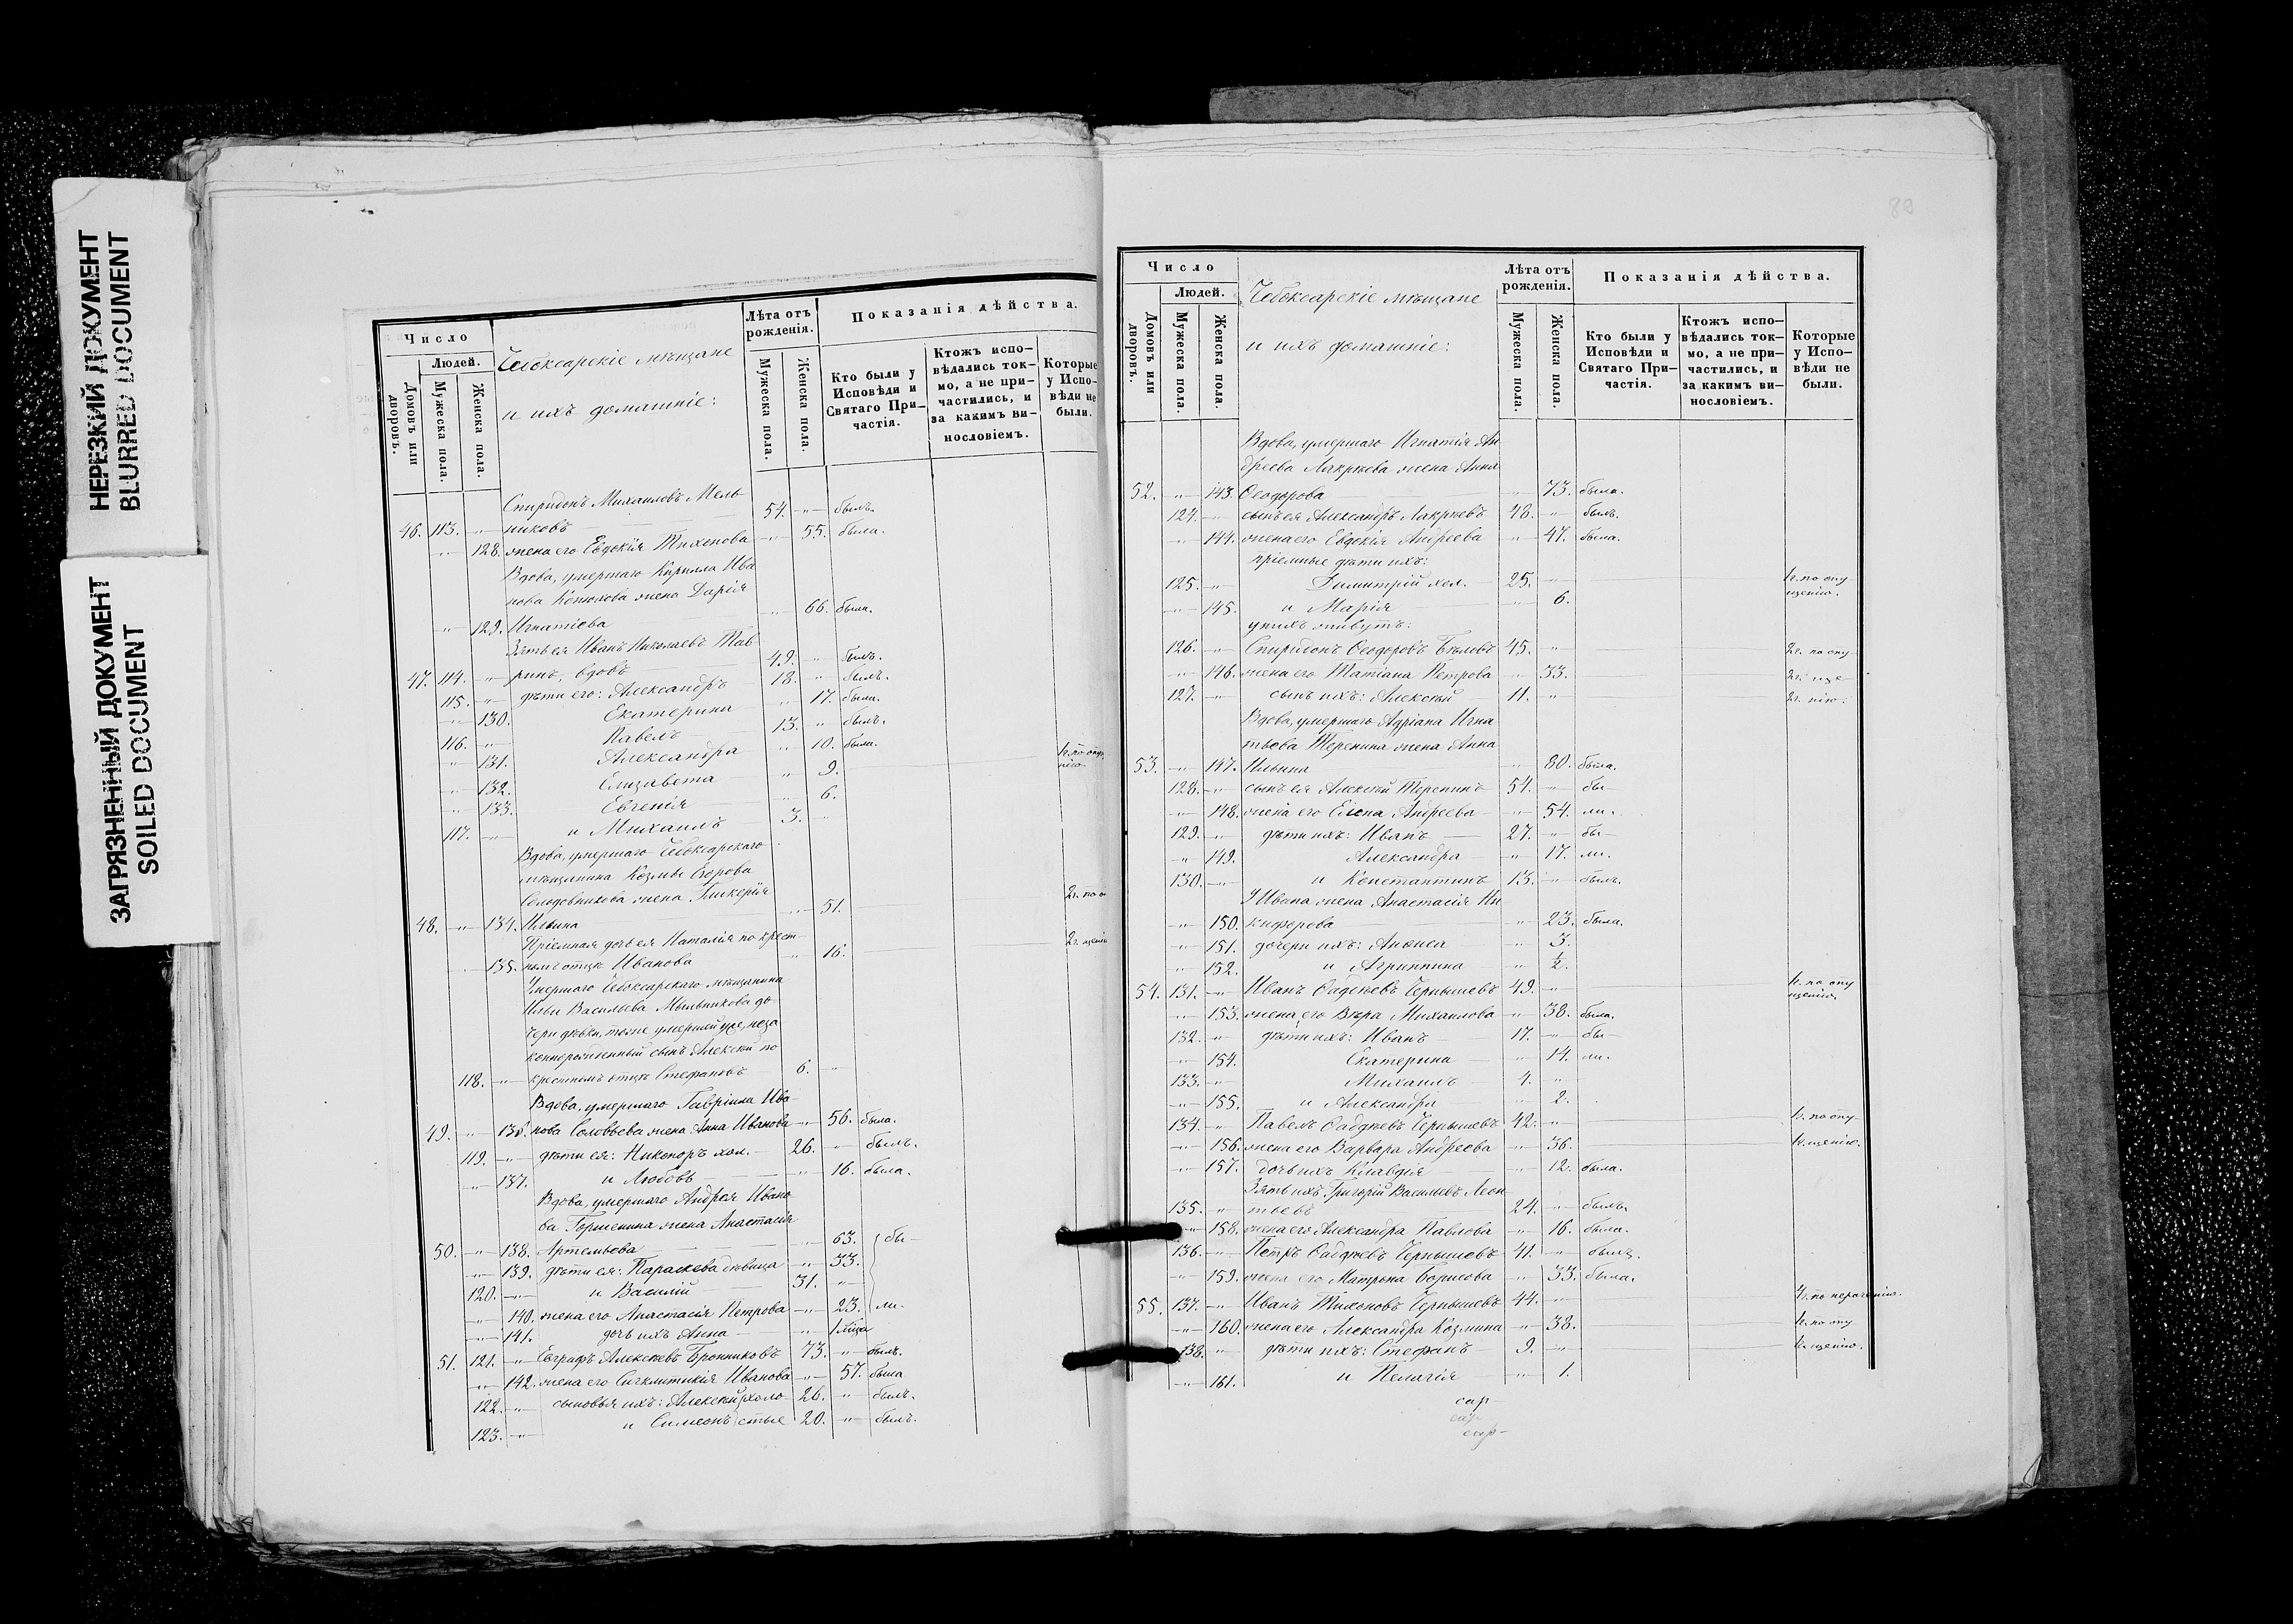 НЕРЕЗКИЙ ДОКУМЕНТ
BLURRED DOCUMENT
ЗАГРЯЗНЕННЫЙ ДОКУМЕНТ
SOILED DOCUMENT
Число
Людей.
Домовъ или дворовъ.
Мужеска пола.
Женска пола.
Чебоксарскіе мѣщане
и ихъ домашніе:
Лѣта отъ рожденія.
Мужеска пола.
Женска пола.
Показанія дѣйства.
Кто были у Исповѣди и Святаго Причастія.
Ктожъ исповѣдались токмо, а не причастились, и за какимъ винословіемъ.
Которые у Исповѣди не были.
Спиридонъ Михаиловъ Мель-
46. 113. -"- никовъ 54. -"- былъ.
-"- 128. жена его Евдокія Тихонова -"- 55. была.
Вдова, умершаго Кирилла Ива
нова Конюхова жена Дарія
-"- 129. Игнатіева -"- 66. была.
Зять ея Иванъ Николаевъ Тав-
47. 114. -"- ринъ, вдовъ 49. " былъ.
115. -"- дѣти его: Александръ 18. " былъ.
-"- 130. Екатерина " 17. была.
116. -"- Павелъ 13. " былъ.
" 131. Александра " 10. была.
" 132. Елизавета " 9.
" 133. Евгенія " 6.
117. -"- и Михаилъ 3. "
Вдова, умершаго Чебоксарскаго
мѣщанина Козмы Егорова
Солодовникова жена Гликерія
48. -"- 134. Ильина -"- 51. 2г. по о
Пріемная дочь ея Наталія по крест-
135. ному отцу Иванова " 16. 2г. щенію
Умершаго Чебоксарскаго мѣщанина
Ильи Васильева Мыльникова до-
чери дѣвки, тоже умершей уже, неза
коннорожденный сынъ Алексѣй по
118. -"- крестному отцу Стефановъ 6. "
Вдова, умершаго Гавріила Ива-
49. -"- 136. нова Соловьева жена Анна Иванова -"- 56. была.
119. -"- дѣти ея: Никоноръ хол. 26. " былъ.
-"- 137. и Любовь -"- 16. была.
Вдова, умершаго Андрея Ивано
ва Горшенина жена Анастасія
50. -"- 138. Артемьева -"- 63. бы-
-"- 139. дѣти ея: Параскева дѣвица -"- 33.
120. -"- и Василій 31. -"-
-"- 140. жена его Анастасія Петрова -"- 23. ли.
-"- 141. дочь ихъ Анна -"-
51. 121. -"- Евграфъ Алексѣевъ Бронниковъ 73. " былъ.
-"- 142. жена его Сигклитикія Иванова -"- 57. была
122. -"- сыновья ихъ: Алексѣй холо- 26. " былъ.
123. -"- и Симеонъ стые 20. " былъ.
80
Число
Людей.
Домовъ или дворовъ.
Мужеска пола.
Женска пола.
Чебоксарскіе мѣщане
и ихъ домашніе:
Лѣта отъ рожденія.
Мужеска пола.
Женска пола.
Показанія дѣйства.
Кто были у Исповѣди и Святаго Причастія.
Ктожъ исповѣдались токмо, а не причастились, и за какимъ винословіемъ.
Которые у Исповѣди не были.
Вдова, умершаго Игнатія Ан
дреева Лакрѣева жена Анна
52. -"- 143. Ѳеодорова " 73. была.
124. -"- сынъ ея Александръ Лакрѣевъ 48. " былъ.
-"- 144. жена его Евдокія Андреева -"- 47. была.
пріемные дѣти ихъ:
125. -"- Димитрій хол. 25. -"- 1г. по опу
щенію.
-"- 145. и Марія -"- 6.
у нихъ живутъ:
126. -"- Спиридонъ Ѳеодоровъ Бѣловъ 45. -"- 2г. по опу
-"- 146. жена его Татіана Петрова " 33. 2г. ще
127. -"- сынъ ихъ: Алексѣй 11. -"- 2г. нію.
Вдова, умершаго Адріана Игна
тьева Теренина жена Анна
53. -"- 147. Ильина " 80. была.
128. -"- сынъ ея Алексѣй Теренинъ 54. " бы-
-"- 148. жена его Елена Андреева " 54. ли.
129. -"- дѣти ихъ: Иванъ 27. " бы-
-"- 149. Александра " 17. ли.
130. -"- и Константинъ 13. " былъ.
У Ивана жена Анастасія Ни
-"- 150. кифорова " 23. была.
-"- 151. дочери ихъ: Анѳиса " 3.
-"- 152. и Агриппина " ½.
54. 131. -"- Иванъ Ѳаддѣевъ Чернышевъ 49. -"- 1г. по опу
щенію
-"- 153. жена его Вѣра Михаилова " 38. была.
132. " дѣти ихъ: Иванъ 17. " бы-
-"- 154. Екатерина " 14. ли.
133. -"- Михаилъ 4. "
-"- 155. и Александра " 2.
134. -"- Павелъ Ѳаддѣевъ Чернышевъ 42. " 1г. по опу-
-"- 156. жена его Варвара Андреева " 36. 1г. щенію.
-"- 157. дочь ихъ Клавдія " 12. была.
Зять ихъ Григорій Васильевъ Леон
135. " тьевъ 24. " былъ.
-"- 158. жена его Александра Павлова " 16. была.
136. -"- Петръ Ѳаддѣевъ Чернышевъ 41. " былъ.
-"- 159. жена его Матрона Борисова " 33. была.
55. 137. -"- Иванъ Тихоновъ Чернышевъ 44. -"- 4г. по нераченію.
-"- 160. жена его Александра Козмина -"- 38. 1г. по опу
138. " дѣти ихъ: Стефанъ 9. -"- 1г. щенію.
-"- 161. и Пелагія -"- 1.